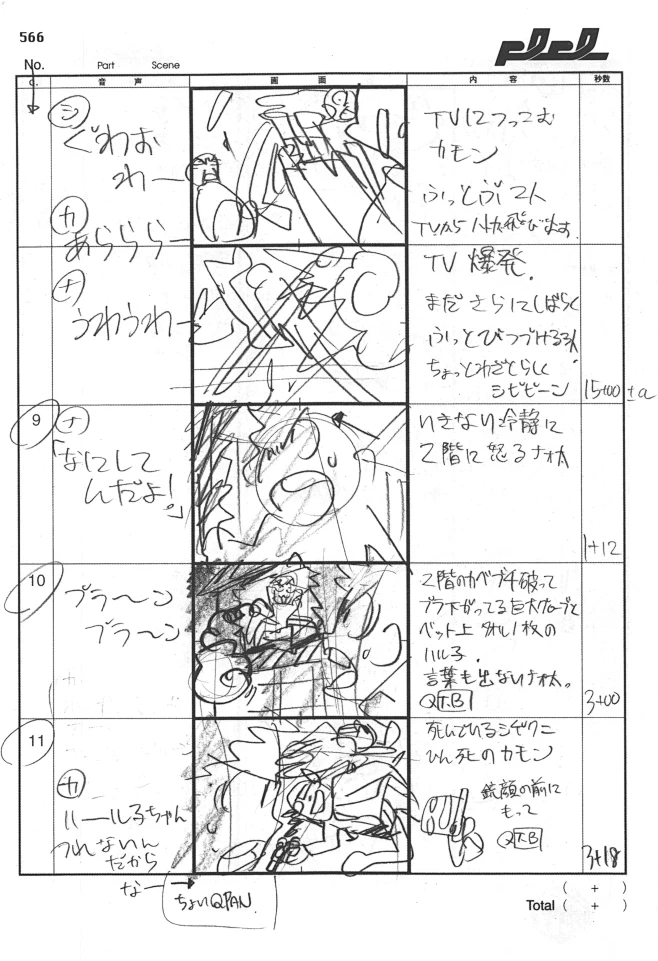 566
No.
Part
Scene
c.
音 声
画 面
内 容
秒数
シ
ぐわお
わー
カ
あららら
TVにつっこむ
カモン
ふっとぶ2人
TVから ハトが飛びます
ナ
うわうわー
TV 爆発.
まだ さらにしばらく
ふっとびつづける2人
ちょっとわざとらしく
シビビーン
15+00 ±α
9
ナ
「なにして
んだよ!」
いきなり冷静に
2階に怒るナオ太
1+12
10
プラ〜ン
プラ〜ン
2階のカベブチ破って
ブラ下がってる巨大グローブと
ベット上 タオル1枚の
ハル子.
言葉も出ないナオ太。
Q T.B
3+00
11
カ
ハールル子ちゃん
つれないん
だから
なー
ちょいQPAN.
死んでいるシゲクニ
ひん死のカモン
銃顔の前に
もって
Q T.B
3+18
( + )
Total ( + )